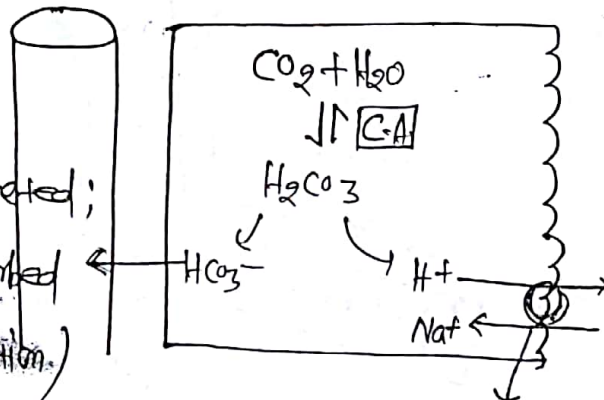 CO2 + H2O
⇃↾ C-A
H2CO3
HCO3-
H+
Na+